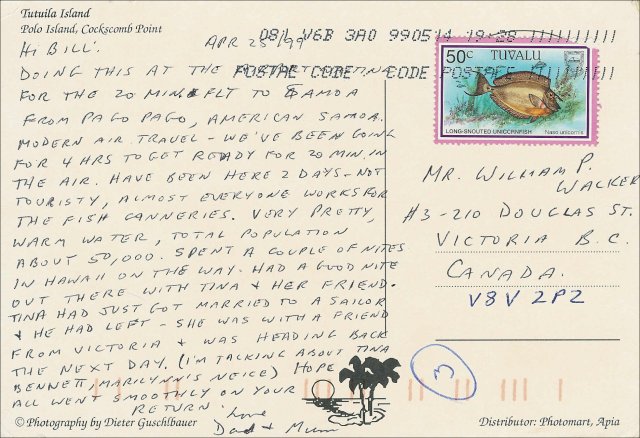 Tutuila Island
Polo Island, Cockscomb Point
HI BILL! APR 25/99
DOING THIS AT THE
FOR THE 20 MIN. FLT TO SAMOA
FROM PAGO PAGO, AMERICAN SAMOA.
MODERN AIR TRAVEL - WE'VE BEEN GOING
FOR 4 HRS TO GET READY FOR 20 MIN. IN
THE AIR. HAVE BEEN HERE 2 DAYS - NOT
TOURISTY, ALMOST EVERYONE WORKS FOR
THE FISH CANNERIES. VERY PRETTY,
WARM WATER, TOTAL POPULATION
ABOUT 50,000. SPENT A COUPLE OF NITES
IN HAWAII ON THE WAY. HAD A GOOD NITE
OUT THERE WITH TINA & HER FRIEND.
TINA HAD JUST GOT MARRIED TO A SAILOR
& HE HAD LEFT - SHE WAS WITH A FRIEND
FROM VICTORIA & WAS HEADING BACK
THE NEXT DAY. (I'M TALKING ABOUT TINA
BENNETT, MARILYNN'S NEICE) HOPE
ALL WENT SMOOTHLY ON YOUR
RETURN. Love
Dad & Mum
© Photography by Dieter Guschlbauer
081 V6B 3A0 990514 19-28
POSTAL CODE CODE POSTAL
50c TUVALU
LONG-SNOUTED UNICORNFISH Naso unicornis
MR. WILLIAM P.
WACKER
#3-210 DOUGLAS ST.
VICTORIA B.C.
CANADA.
V8V 2P2
3
Distributor: Photomart, Apia